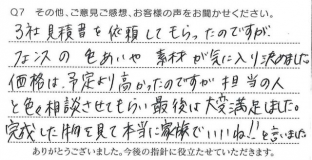 Q7 その他、ご意見ご感想、お客様の声をお聞かせください。
3社見積書を依頼してもらったのですが、
フェンスの色あいや 素材が気に入り決めました
価格は、予定より高かったのですが担当の人
と色々相談させてもらい最後は大変満足しました。
完成した物を見て本当に家族でいいね!!と言いました
ありがとうございました。今後の指針に役立たせていただきます。